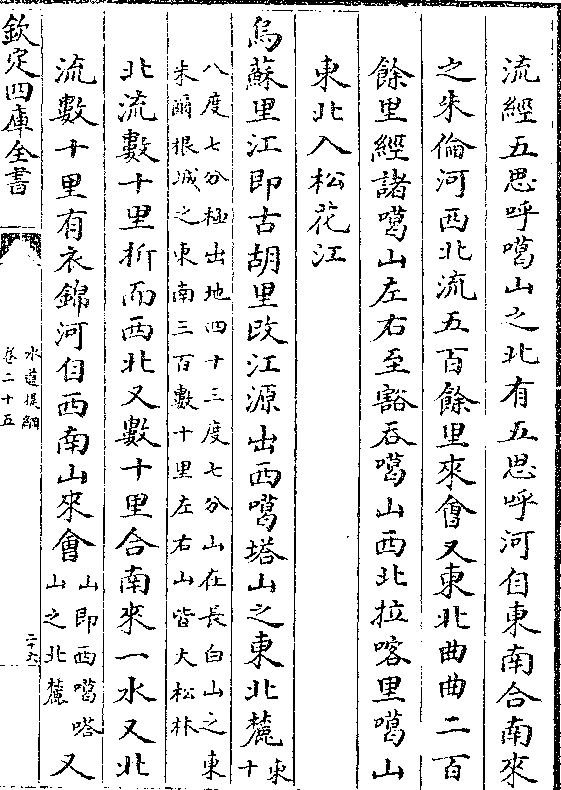 流經五思呼噶山之北有五思呼河自東南合南來
之朱倫河西北流五百餘里來會又東北曲曲二百
餘里經諸噶山左右至豁吞噶山西北拉喀里噶山
東北入松花江
烏蘇里江即古胡里改江源出西噶塔山之東北麓東十
八度七分極出地四十三度七分山在長白山之東
朱爾根城之東南三百數十里左右山皆大松林
北流數十里折而西北又數十里合南來一水又北
流數十里有衣錦河自西南山來會山即西噶嗒山之北麓又
欽定四庫全書
水道提綱
卷二十五
二十六